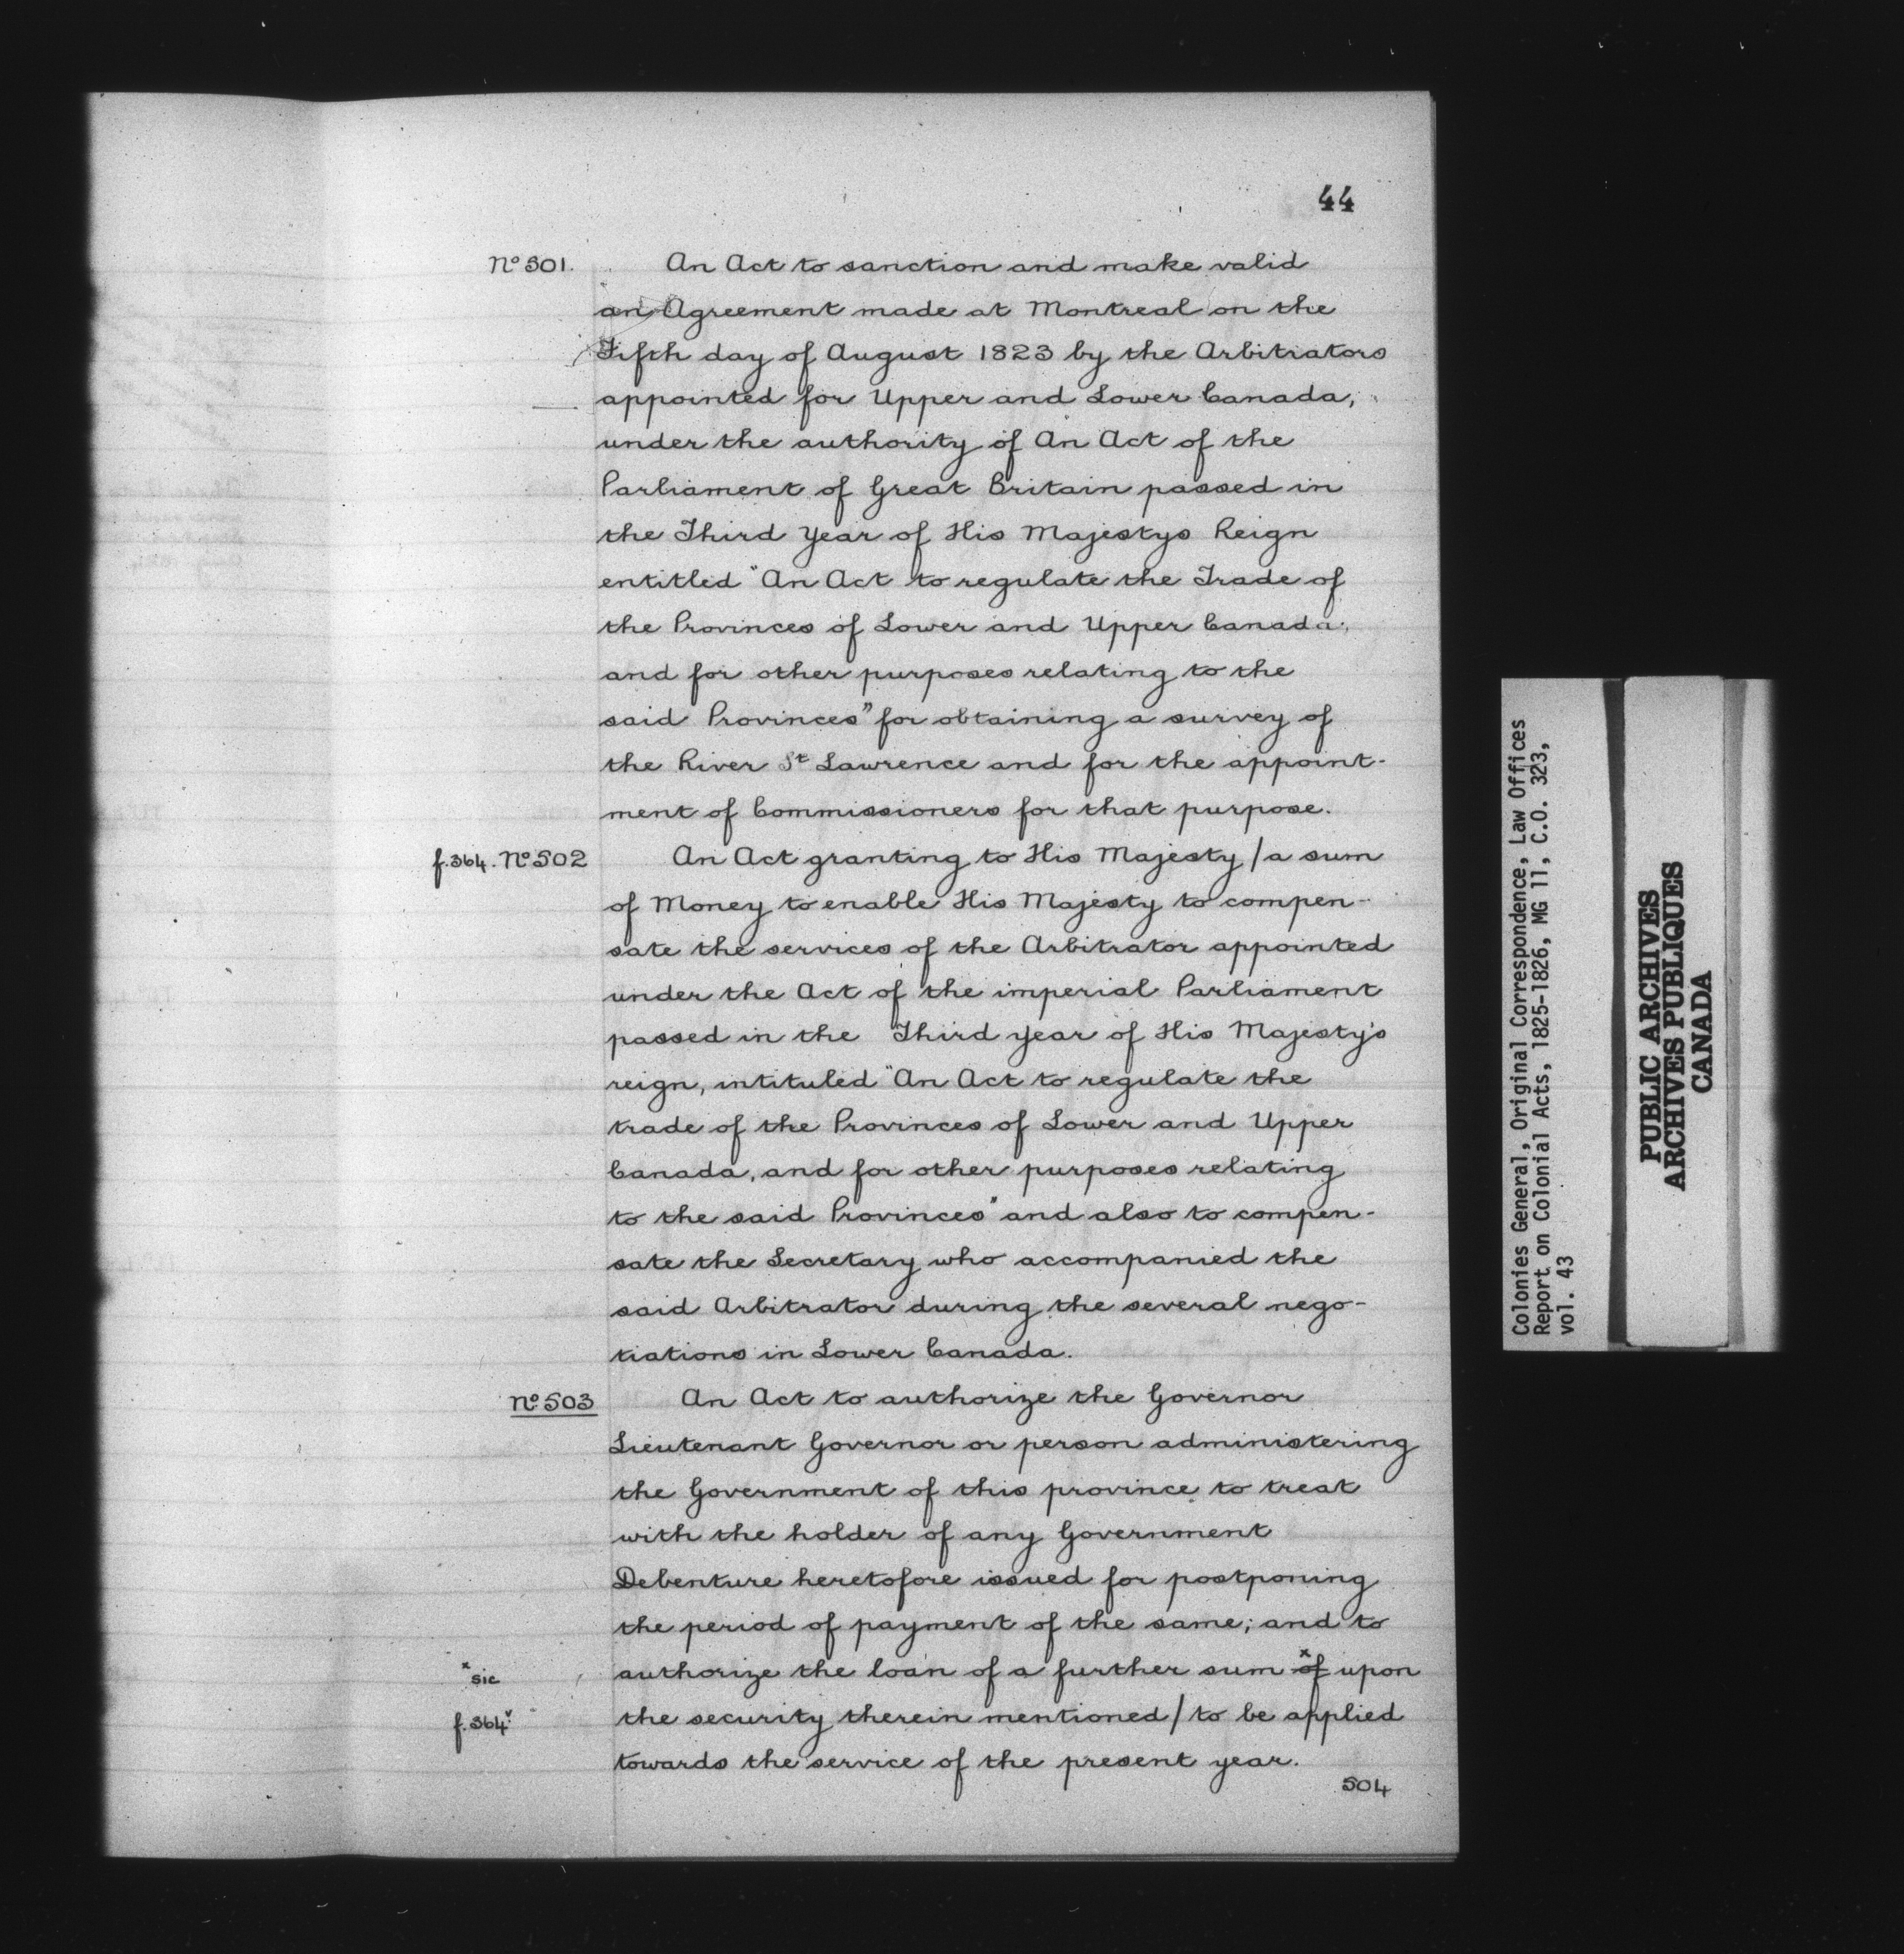 44
No 501. An Act to sanction and make valid
an Agreement made at Montreal on the
Fifth day of August 1823 by the Arbitrators
appointed for Upper and Lower Canada,
under the authority of An Act of the
Parliament of Great Britain passed in
the Third Year of His Majestys Reign
entitled "An Act to regulate the Trade of
the Provinces of Lower and Upper Canada,
and for other purposes relating to the
said Provinces" for obtaining a survey of
the River St Lawrence and for the appoint-
ment of Commissioners for that purpose.
f.364. No 502 An Act granting to His Majesty / a sum
of Money to enable His Majesty to compen-
sate the services of the Arbitrator appointed
under the Act of the imperial Parliament
passed in the Third year of His Majesty's
reign, intituled "An Act to regulate the
trade of the Provinces of Lower and Upper
Canada, and for other purposes relating
to the said Provinces" and also to compen-
sate the Secretary who accompanied the
said Arbitrator during the several nego-
tiations in Lower Canada.
No 503 An Act to authorize the Governor
Lieutenant Governor or person administering
the Government of this province to treat
with the holder of any Government
Debenture heretofore issued for postponing
the period of payment of the same; and to
x sic authorize the loan of a further sum of x upon
f.364v. the security therein mentioned / to be applied
towards the service of the present year.
504
Colonies General, Original Correspondence, Law Offices
Report on Colonial Acts, 1825-1826, MG 11, C.O. 323,
vol. 43
PUBLIC ARCHIVES
ARCHIVES PUBLIQUES
CANADA